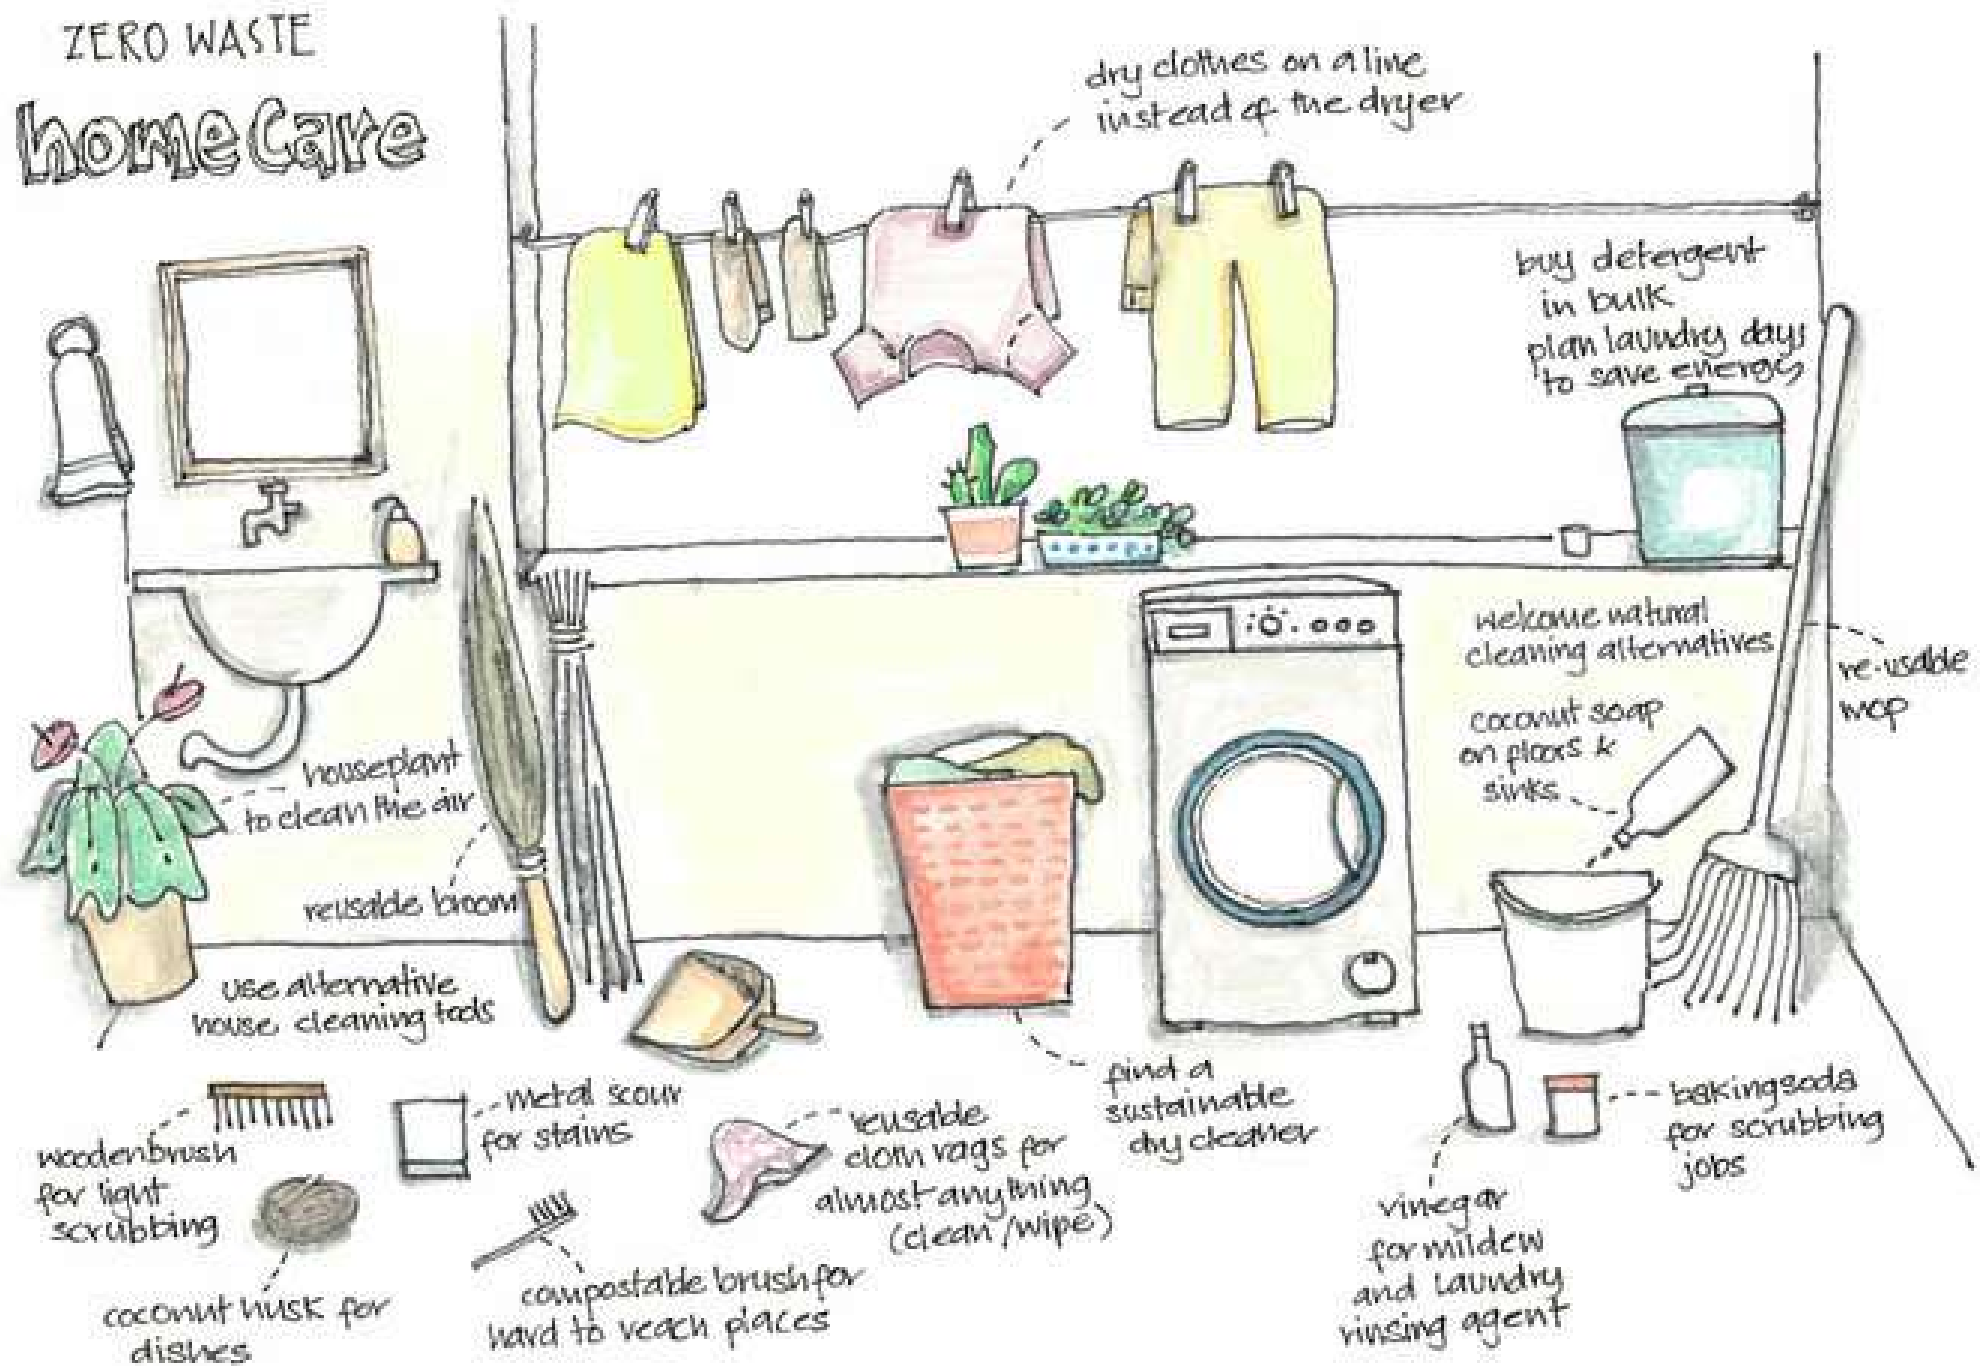 ZERO WASTE
home care
dry clothes on a line
instead of the dryer
buy detergent
in bulk
plan laundry days
to save energy
welcome natural
cleaning alternatives
re-usable
mop
coconut soap
on floors &
sinks
houseplant
to clean the air
reusable broom
use alternative
house cleaning tools
wooden brush
for light
scrubbing
metal scour
for stains
coconut husk for
dishes
compostable brush for
hard to reach places
reusable
cloth rags for
almost anything
(clean/wipe)
find a
sustainable
dry cleaner
vinegar
for mildew
and laundry
rinsing agent
baking soda
for scrubbing
jobs